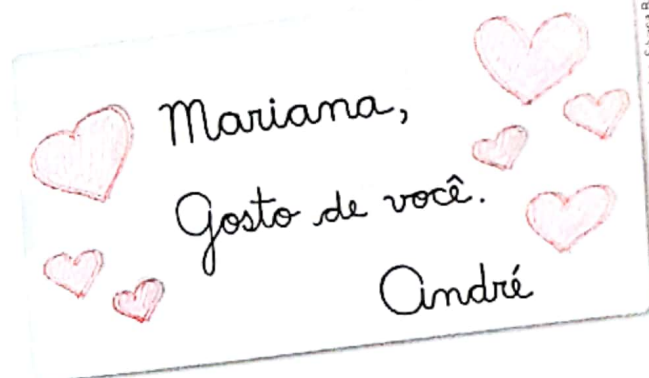 Mariana,
Gosto de você.
André